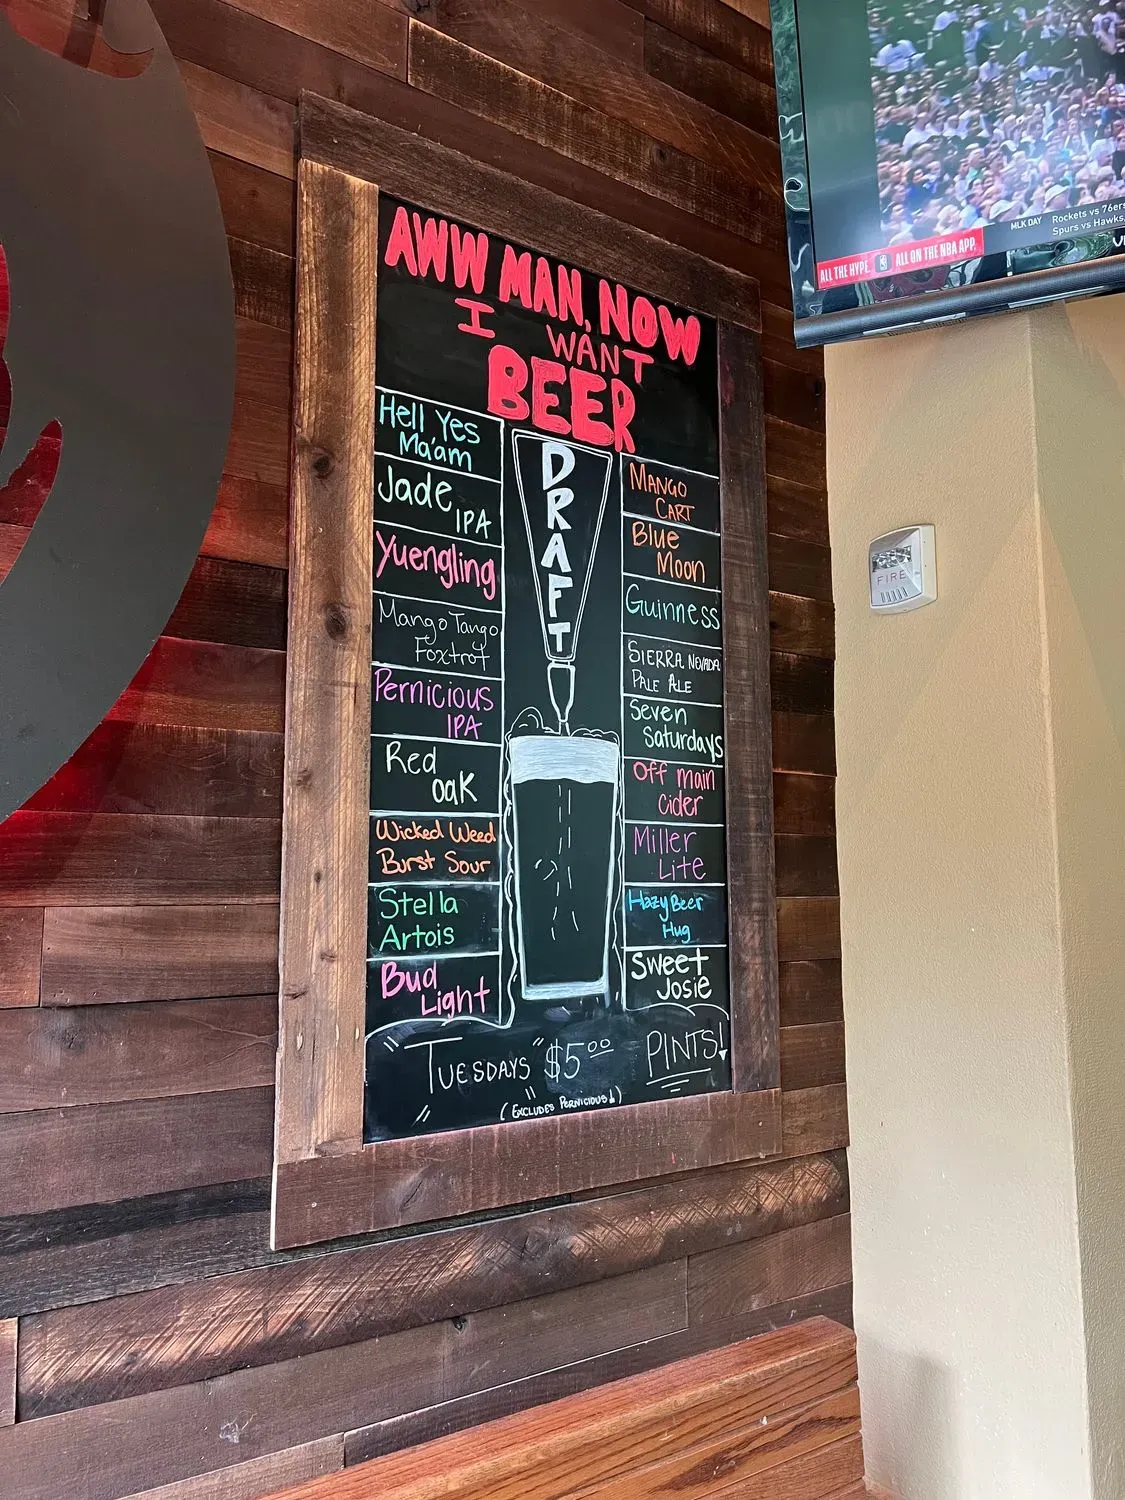 AWW MAN, NOW
I WANT
BEER
DRAFT
Hell Yes
Ma'am
Jade IPA
Yuengling
Mango Tango
Foxtrot
Pernicious
IPA
Red
oak
Wicked Weed
Burst Sour
Stella
Artois
Bud
Light
Mango
Cart
Blue
Moon
Guinness
Sierra Nevada
Pale Ale
Seven
Saturdays
Off main
cider
Miller
Lite
Hazy Beer
Hug
Sweet
Josie
"Tuesdays" $5.00 PINTS!
(Excludes Pernicious!)
MLK DAY
Rockets vs 76ers
Spurs vs Hawks
ALL THE HYPE. ALL ON THE NBA APP.
FIRE